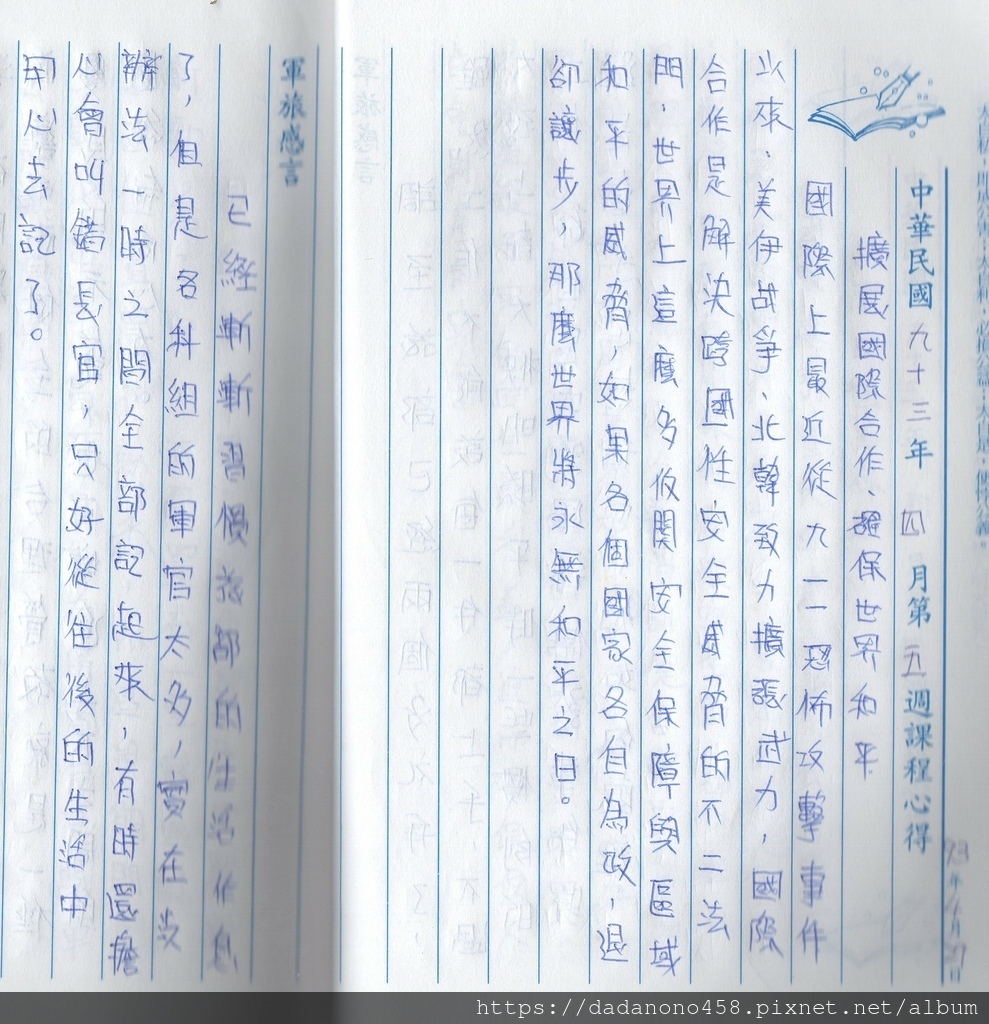 中華民國九十三年四月第五週課程心得
93年4月29日
擴展國際合作、確保世界和平
國際上最近從九一一恐怖攻擊事件
以來,美伊战爭、北韓致力擴張武力,國際
合作是解決跨國性安全威脅的不二法
門,世界上這麼多攸関安全保障與區域
和平的威脅,如果各個國家各自為政,退
卻讓步,那麼世界將永無和平之日。
軍旅感言
已經漸漸習慣旅部的生活作息
了,但是各科組的軍官太多,實在沒
辦法一時之間全部記起來,有時還擔
心會叫錯長官,只好從往後的生活中
用心去記了。
https://dadanono458.pixnet.net/album